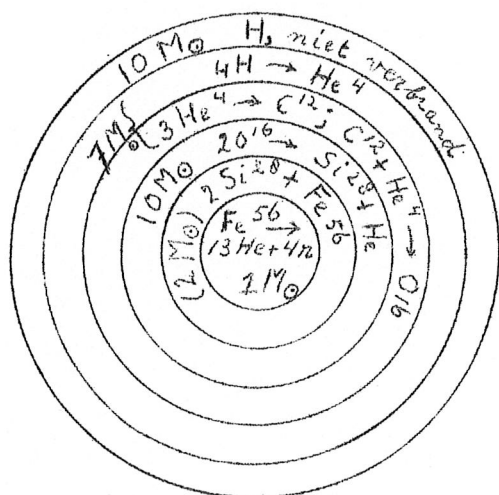 10 M☉ H, niet verbrand
4H → He⁴
7 M☉ { 3 He⁴ → C¹²; C¹² + He⁴ → O16
10 M☉ 2O¹⁶ → Si²⁸ + He
(2 M☉) 2 Si²⁸ + Fe⁵⁶
Fe⁵⁶ →
13He + 4n
1 M☉